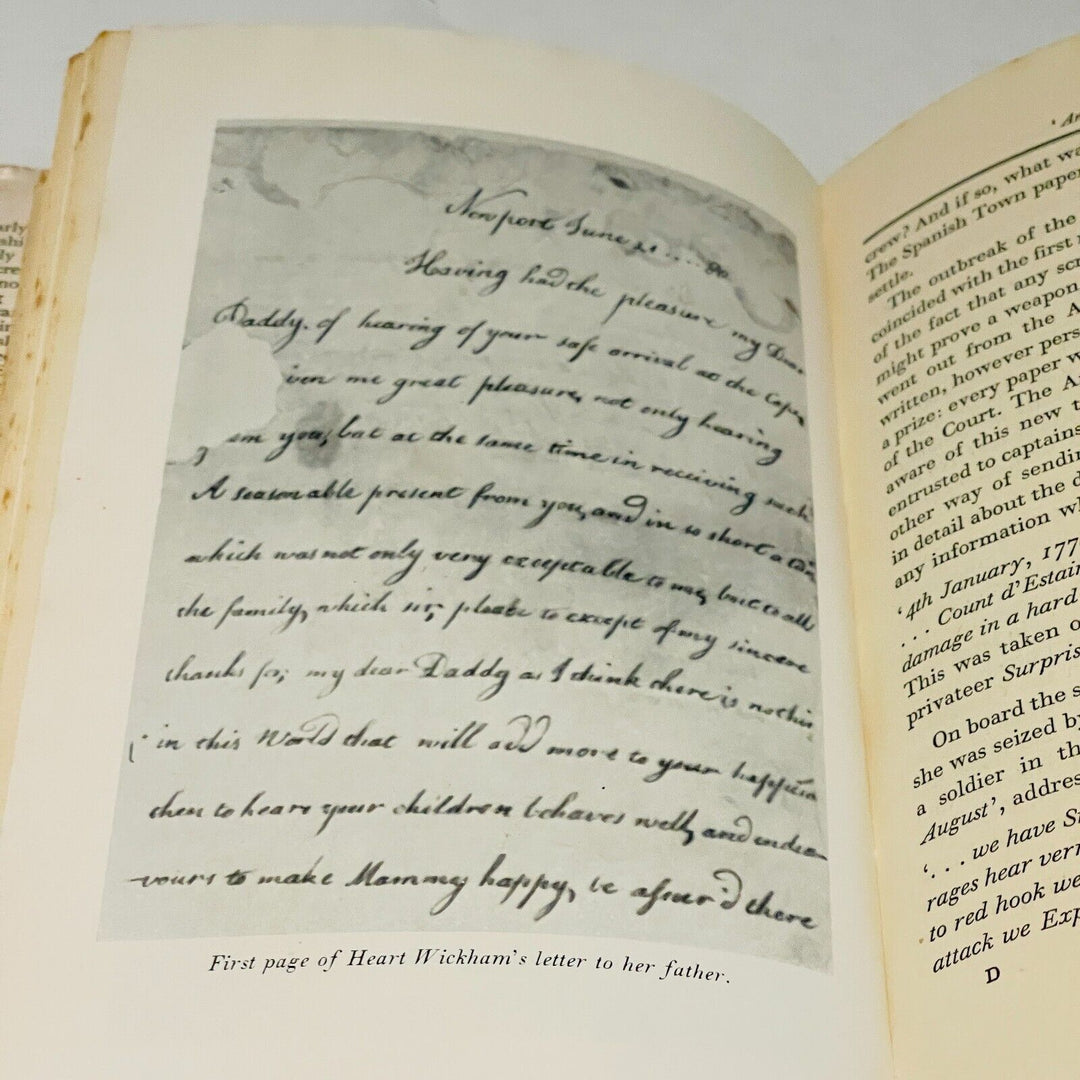 Newport June 21 .... 90
Having had the pleasure my Dear
Daddy, of hearing of your safe arrival at the Cape,
iven me great pleasure, not only hearing
om you, but at the same time in receiving such
A seasonable present from you, and in so short a time
which was not only very exceptable to me, but to all
the family, which sir, please to except of my sincere
thanks for, my dear Daddy as I think there is nothin
in this World that will add more to your happin
then to heare your children behaves well, and endea
vours to make Mammy happy, be assur'd there
First page of Heart Wickham's letter to her father.
crew? And if so, what wa
The Spanish Town paper
settle.
The outbreak of the
coincided with the first
of the fact that any scr
might prove a weapon.
went out from the A
written, however pers
a prize: every paper w
of the Court. The A
aware of this new t
entrusted to captains
other way of sendin
in detail about the d
any information wh
'4th January, 177
... Count d'Estain
damage in a hard
This was taken o
privateer Surpris
On board the s
she was seized by
a soldier in th
August', addres
'... we have S
rages hear verr
to red hook we
attack we Exp
D